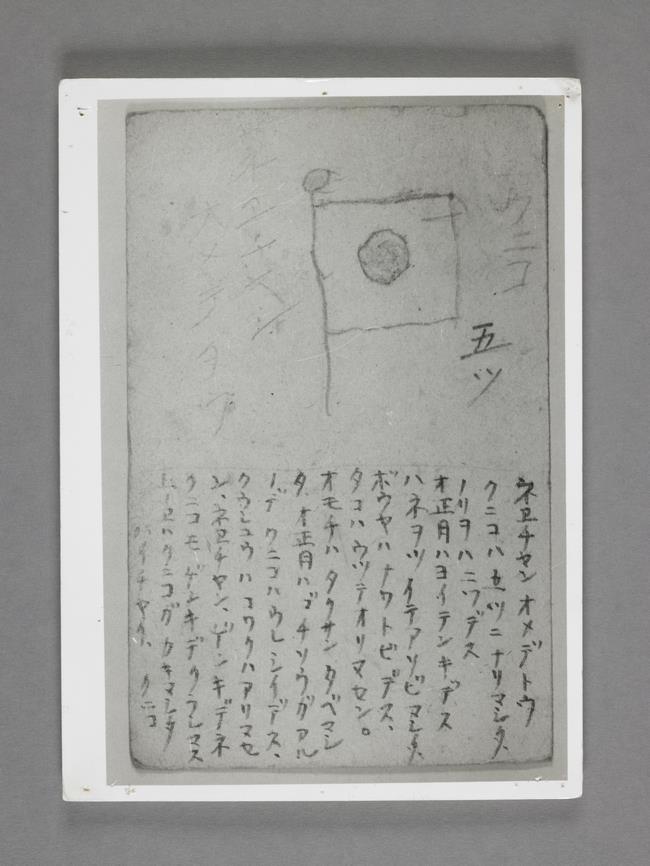 クニコ
五ツ
ネヱチヤン オメデトウ
クニコハ 五ツニナリマシタ、
ノリヲハ 二ツデス
オ正月ハヨイテンキデス
ハネヲツイテアソビマシタ、
ボウヤハ ナワトビデス、
タコハウツテオリマセン。
オモチハ タクサン タベマシ
タ、オ正月ハゴチソウガアル
ノデ クニコハウレシイデス、
クウシユウハコワクハアリマセ
ン、ネヱチヤン、ゲンキデネ
クニコモゲンキデクラシマス
ヱハクニコガカキマシタ
クニコ